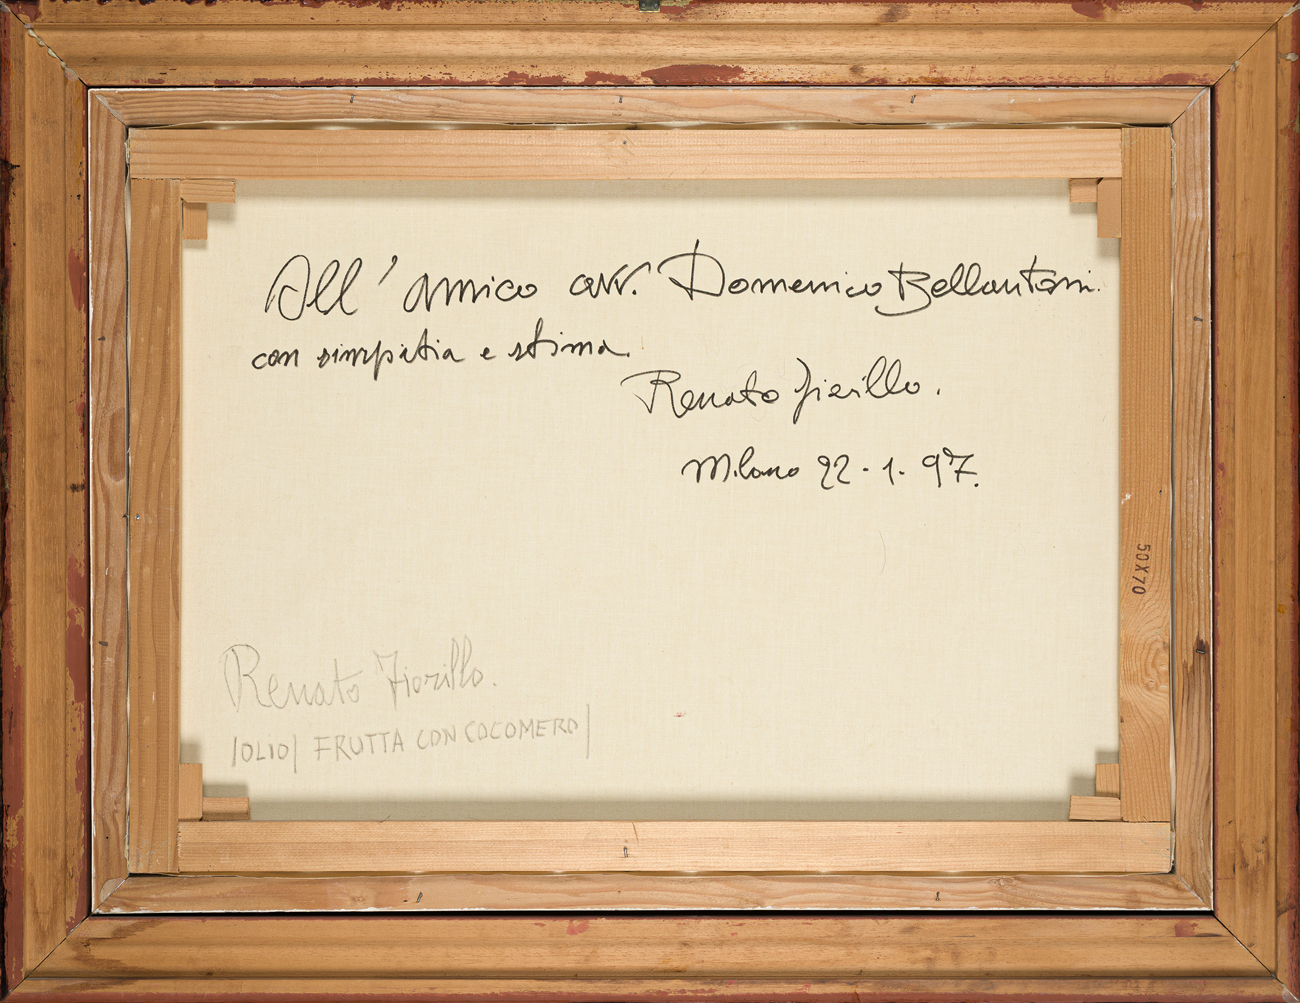 All'amico avv. Domenico Bellantoni.
con simpatia e stima.
Renato Fiorillo.
Milano 22.1.97.
50X70
Renato Fiorillo.
|OLIO| FRUTTA CON COCOMERO|